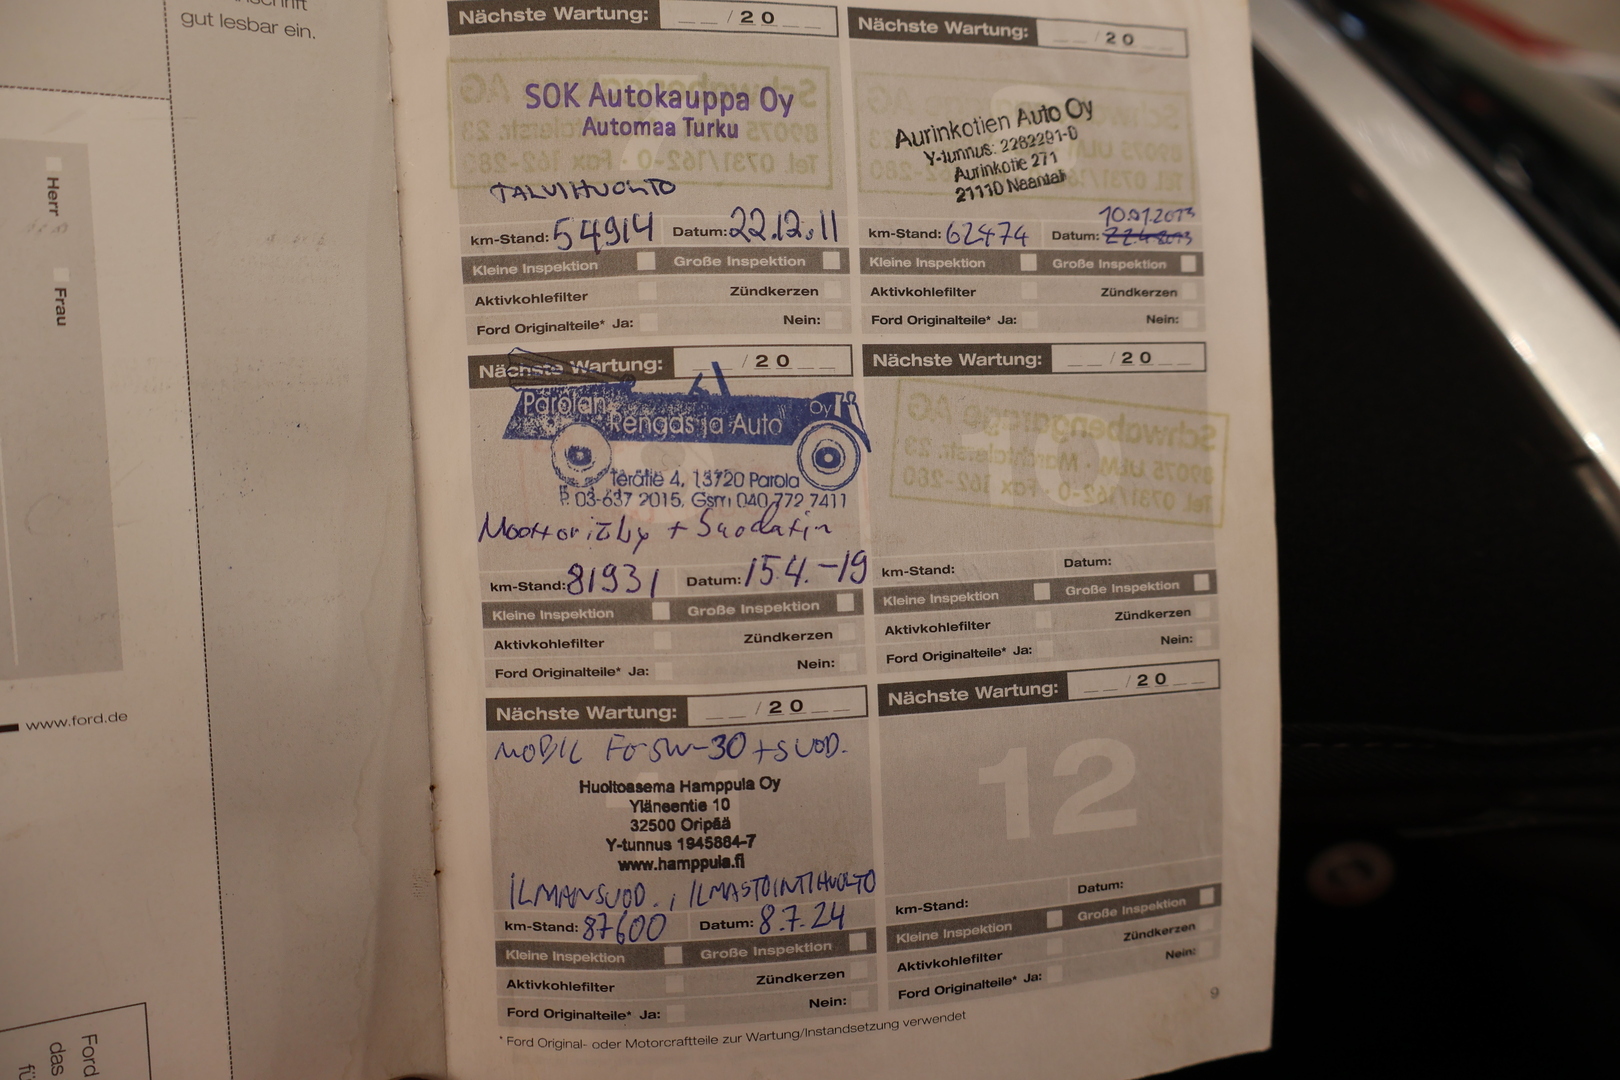 gut lesbar ein.
Herr
Frau
www.ford.de
Ford
das
Nächste Wartung: __/20__
SOK Autokauppa Oy
Automaa Turku
TALVIHUOLTO
km-Stand: 54914 Datum: 22.12.11
Kleine Inspektion Große Inspektion
Aktivkohlefilter Zündkerzen
Ford Originalteile* Ja: Nein:
Nächste Wartung: __/20__
Aurinkotien Auto Oy
Y-tunnus: 2282291-0
Aurinkotie 271
21110 Naantali
10.01.2013
km-Stand: 62474 Datum:
Kleine Inspektion Große Inspektion
Aktivkohlefilter Zündkerzen
Ford Originalteile* Ja: Nein:
Nächste Wartung: __/20__
Parolan
Rengas ja Auto Oy
Terätie 4, 13720 Parola
P. 03-637 2015, Gsm 040 772 7411
Moottoriöljy + Suodatin
km-Stand: 81931 Datum: 15.4.-19
Kleine Inspektion Große Inspektion
Aktivkohlefilter Zündkerzen
Ford Originalteile* Ja: Nein:
Nächste Wartung: __/20__
Schwabengarage AG
89075 ULM · Marchtalerstr. 23
Tel. 0731/162-0 · Fax 162-280
km-Stand: Datum:
Kleine Inspektion Große Inspektion
Aktivkohlefilter Zündkerzen
Ford Originalteile* Ja: Nein:
Nächste Wartung: __/20__
MOBIL Fo 5W-30 + SUOD.
Huoltoasema Hamppula Oy
Yläneentie 10
32500 Oripää
Y-tunnus 1945884-7
www.hamppula.fi
ILMANSUOD., ILMASTOINTIHUOLTO
km-Stand: 87600 Datum: 8.7.24
Kleine Inspektion Große Inspektion
Aktivkohlefilter Zündkerzen
Ford Originalteile* Ja: Nein:
Nächste Wartung: __/20__
12
km-Stand: Datum:
Kleine Inspektion Große Inspektion
Aktivkohlefilter Zündkerzen
Ford Originalteile* Ja: Nein:
* Ford Original- oder Motorcraftteile zur Wartung/Instandsetzung verwendet
9